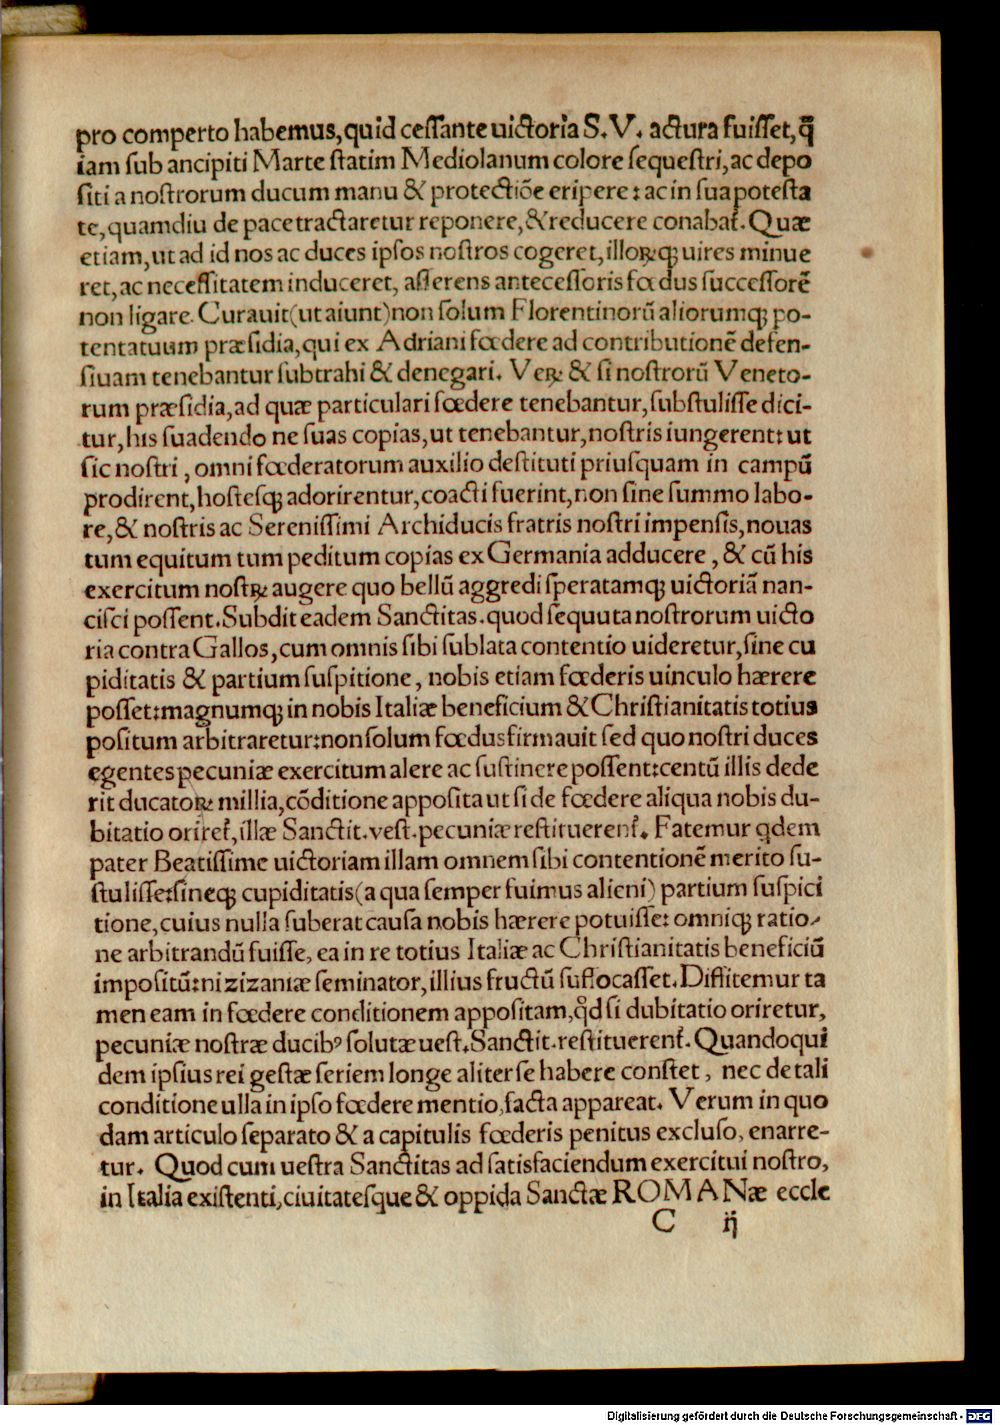 pro comperto habemus,quid ceſſante uictoria S.V. actura fuiſſet,q̃
iam ſub ancipiti Marte ſtatim Mediolanum colore ſequeſtri,ac depo
ſiti a noſtrorum ducum manu & protectiõe eripere: ac in ſua poteſta
te,quamdiu de pace tractaretur reponere,& reducere conabat᷑. Quæ
etiam,ut ad id nos ac duces ipſos noſtros cogeret,illoꝝqꝫ uires minue
ret,ac neceſſitatem induceret, aſſerens anteceſſoris fœdus ſucceſſorẽ
non ligare. Curauit(ut aiunt)non ſolum Florentinorũ aliorumqꝫ po-
tentatuum præſidia,qui ex Adriani fœdere ad contributionẽ defen-
ſiuam tenebantur ſubtrahi & denegari. Veꝝ & ſi noſtrorũ Veneto-
rum præſidia,ad quæ particulari fœdere tenebantur,ſubſtuliſſe dici-
tur,his ſuadendo ne ſuas copias,ut tenebantur,noſtris iungerent: ut
ſic noſtri , omni fœderatorum auxilio deſtituti priuſquam in campũ
prodirent,hoſteſqꝫ adorirentur,coacti fuerint,non ſine ſummo labo-
re,& noſtris ac Sereniſſimi Archiducis fratris noſtri impenſis,nouas
tum equitum tum peditum copias ex Germania adducere , & cũ his
exercitum noſtꝝ augere quo bellũ aggredi ſperatamqꝫ uictoriã nan-
ciſci poſſent.Subdit eadem Sanctitas.quod ſequuta noſtrorum uicto
ria contra Gallos,cum omnis ſibi ſublata contentio uideretur,ſine cu
piditatis & partium ſuſpitione , nobis etiam fœderis uinculo hærere
poſſet:magnumqꝫ in nobis Italiæ beneficium & Chriſtianitatis totius
poſitum arbitraretur:non ſolum fœdus firmauit ſed quo noſtri duces
egentes pecuniæ exercitum alere ac ſuſtinere poſſent:centũ illis dede
rit ducatoꝝ millia,cõditione appoſita ut ſi de fœdere aliqua nobis du-
bitatio oriret᷑,illæ Sanctit.veſt.pecuniæ reſtituerent᷑. Fatemur qdem
pater Beatiſſime uictoriam illam omnem ſibi contentionẽ merito ſu-
ſtuliſſe:ſineqꝫ cupiditatis(a qua ſemper fuimus alieni) partium ſuſpici
tione,cuius nulla ſuberat cauſa nobis hærere potuiſſe: omniqꝫ ratio-
ne arbitrandũ fuiſſe, ea in re totius Italiæ ac Chriſtianitatis beneficiũ
impoſitũ:ni zizaniæ ſeminator,illius fructũ ſuffocaſſet.Diffitemur ta
men eam in fœdere conditionem appoſitam,qd ſi dubitatio oriretur,
pecuniæ noſtræ ducibꝰ ſolutæ ueſt.Sanctit.reſtituerent᷑. Quandoqui
dem ipſius rei geſtæ ſeriem longe aliter ſe habere conſtet , nec de tali
conditione ulla in ipſo fœdere mentio,facta appareat. Verum in quo
dam articulo ſeparato & a capitulis fœderis penitus excluſo, enarre-
tur. Quod cum ueſtra Sanctitas ad ſatisfaciendum exercitui noſtro,
in Italia exiſtenti,ciuitateſque & oppida Sanctæ ROMANæ eccle
C ij
Digitalisierung gefördert durch die Deutsche Forschungsgemeinschaft - DFG